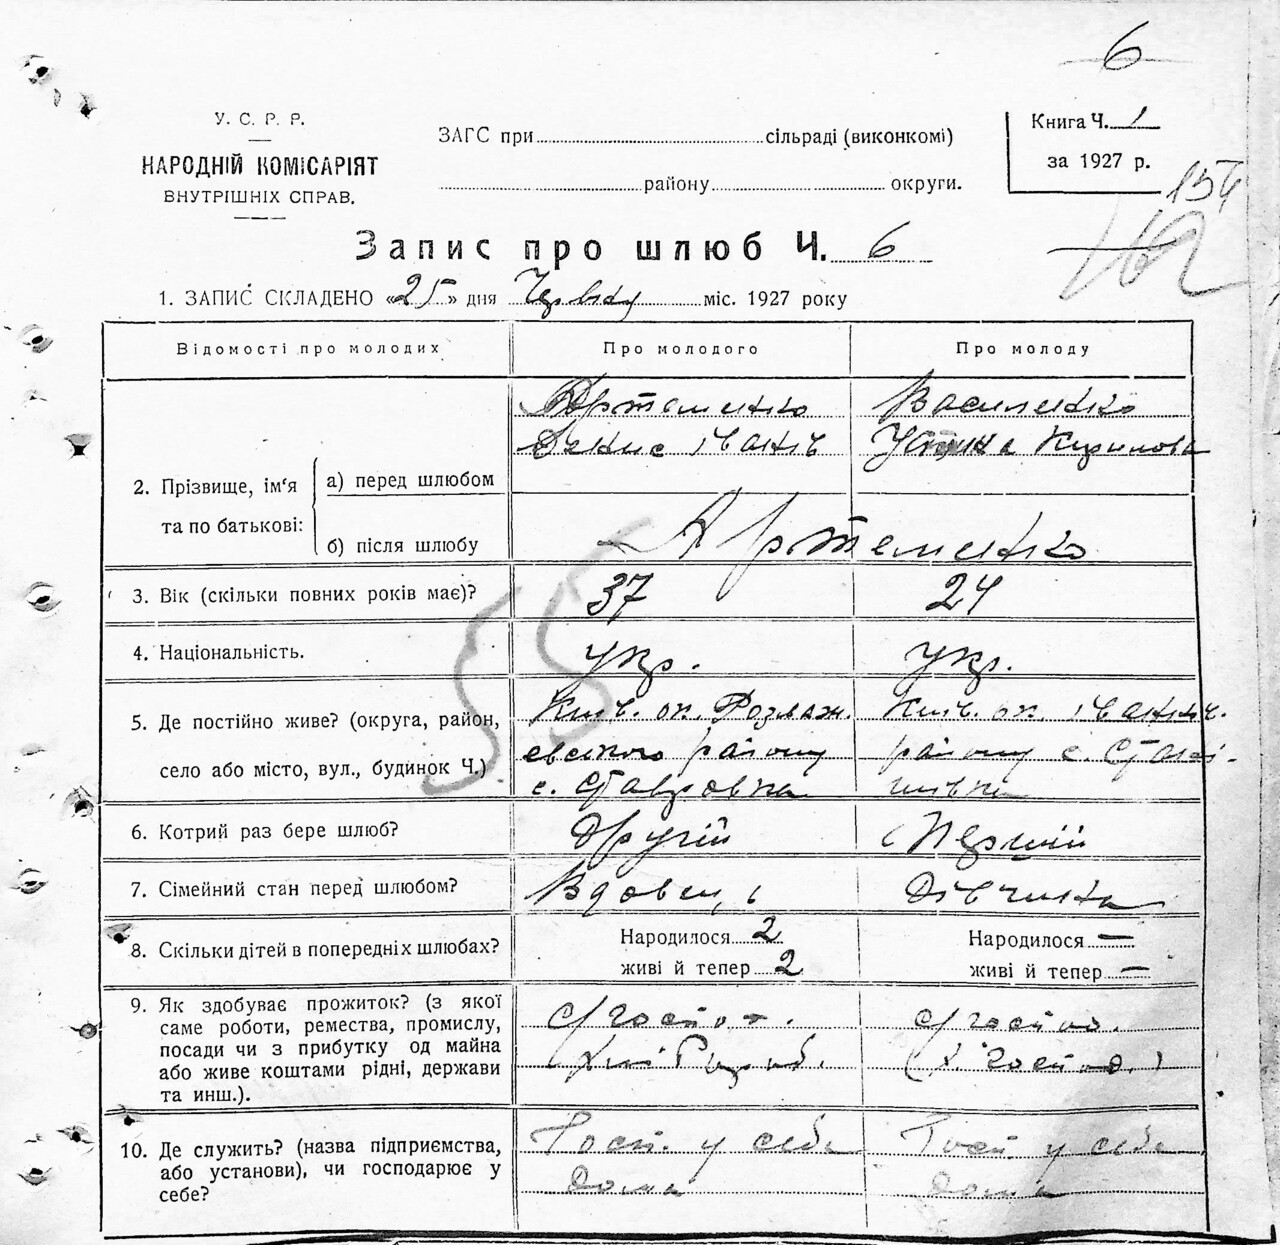 6
У. С. Р. Р.
НАРОДНІЙ КОМІСАРІЯТ
ВНУТРІШНІХ СПРАВ.
ЗАГС при сільраді (виконкомі)
району округи.
Книга Ч. 1
за 1927 р.
154
Запис про шлюб Ч. 6
1. ЗАПИС СКЛАДЕНО «25» дня Червня міс. 1927 року
Відомості про молодих Про молодого Про молоду
Артеменко Василенко
Денис Іванів Устина Кирилова
2. Прізвище, ім'я та по батькові:
а) перед шлюбом
б) після шлюбу Артеменко
3. Вік (скільки повних років має)? 37 24
4. Національність. укр. укр.
5. Де постійно живе? (округа, район, село або місто, вул., будинок Ч.)
Київ. ок. Розваж- Київ. ок. Іванків.
евського району району с. Стані-
с. Ставровка шівка
6. Котрий раз бере шлюб? Другій Першій
7. Сімейний стан перед шлюбом? Вдовець Дівчина
8. Скільки дітей в попередніх шлюбах? Народилося 2 Народилося —
живі й тепер 2 живі й тепер —
9. Як здобуває прожиток? (з якої
саме роботи, ремества, промислу,
посади чи з прибутку од майна
або живе коштами рідні, держави
та инш.).
с/госпо.
Хлібороб.
10. Де служить? (назва підприємства,
або установи), чи господарює у
себе?
Госп. у себе Госп. у себе
дома дома